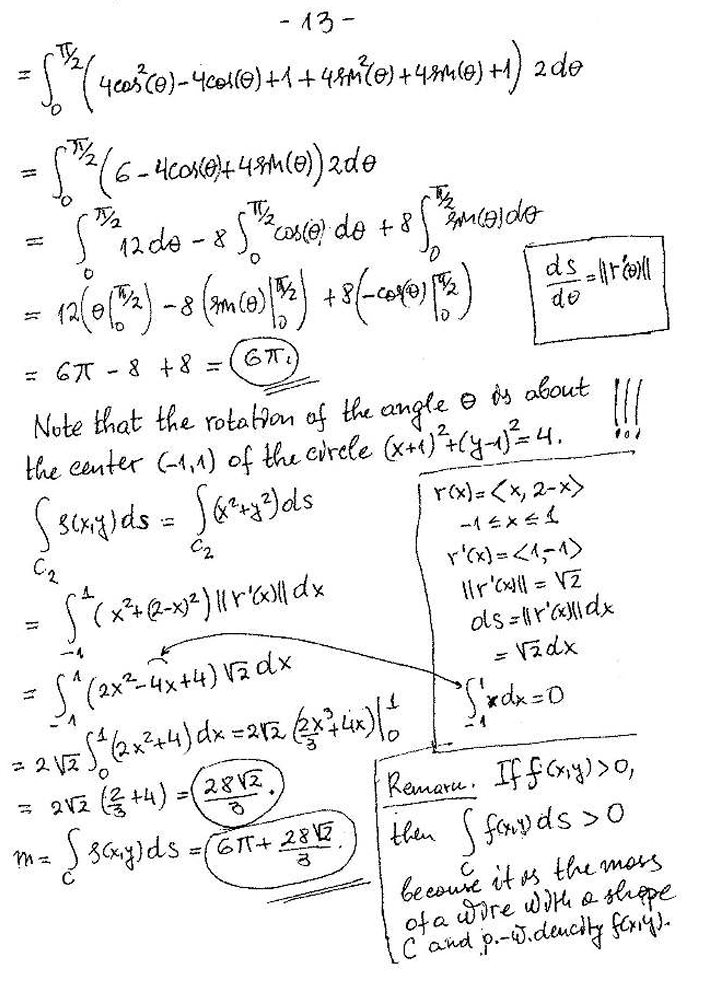 - 13 -
= ∫_0^{π/2} (4cos²(θ) - 4cos(θ) + 1 + 4sin²(θ) + 4sin(θ) + 1) 2dθ
= ∫_0^{π/2} (6 - 4cos(θ) + 4sin(θ)) 2dθ
= ∫_0^{π/2} 12dθ - 8 ∫_0^{π/2} cos(θ) dθ + 8 ∫_0^{π/2} sin(θ)dθ
= 12(θ|_0^{π/2}) - 8(sin(θ)|_0^{π/2}) + 8(-cos(θ)|_0^{π/2})
ds/dθ = ||r'(θ)||
= 6π - 8 + 8 = 6π.
Note that the rotation of the angle θ is about !!!
the center (-1,1) of the circle (x+1)²+(y-1)²=4.
∫_{C₂} ρ(x,y)ds = ∫_{C₂} (x²+y²)ds
= ∫_{-1}^1 (x²+(2-x)²) ||r'(x)|| dx
= ∫_{-1}^1 (2x²-4x+4) √2 dx
= 2√2 ∫_0^1 (2x²+4) dx = 2√2 (2x³/3+4x)|_0^1
= 2√2 (2/3+4) = 28√2/3.
m = ∫_C ρ(x,y)ds = 6π + 28√2/3.
r(x) = <x, 2-x>
-1 ≤ x ≤ 1
r'(x) = <1,-1>
||r'(x)|| = √2
ds = ||r'(x)||dx
= √2 dx
∫_{-1}^1 x dx = 0
Remark. If f(x,y)>0,
then ∫_C f(x,y)ds > 0
because it is the mass
of a wire with a shape
C and p.-w. dencity f(x,y).